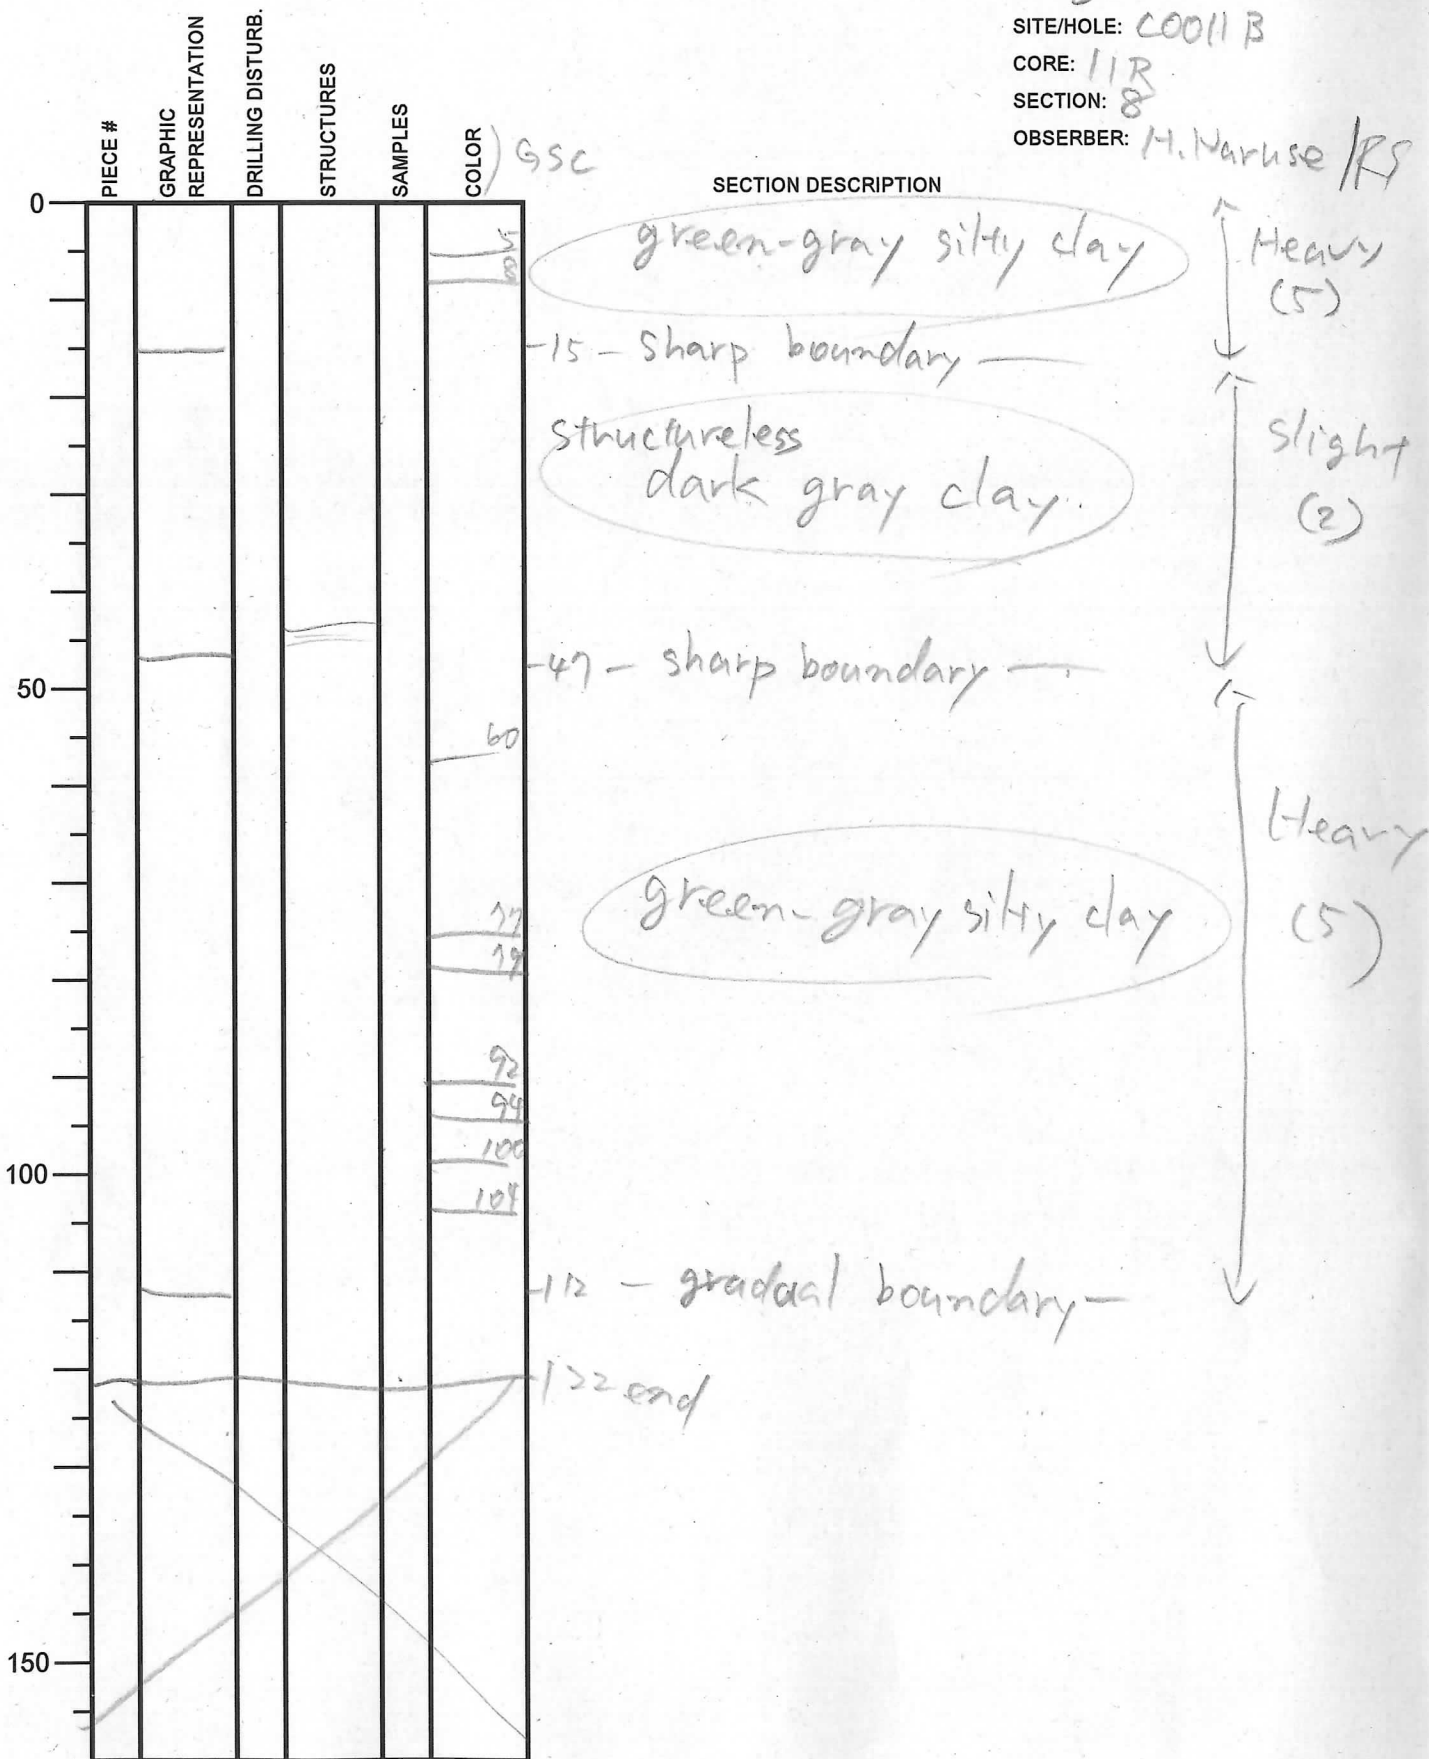 SITE/HOLE: C0011 B
CORE: 11R
SECTION: 8
OBSERBER: H. Naruse /RS
PIECE #
GRAPHIC
REPRESENTATION
DRILLING DISTURB.
STRUCTURES
SAMPLES
COLOR
) GSC
SECTION DESCRIPTION
0
5
green-gray silty clay
Heavy
8
(5)
-15 - sharp boundary
structureless
dark gray clay.
slight
(2)
-47 - sharp boundary
50
60
Heavy
77
green-gray silty clay
(5)
79
92
94
100
100
104
-112 - gradual boundary -
-122 end
150